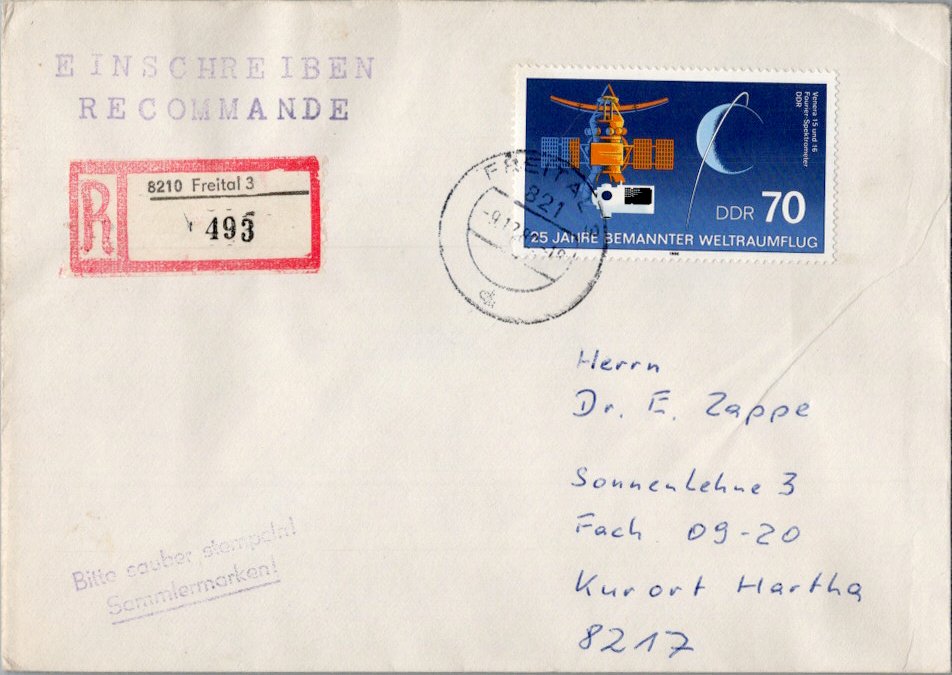 EINSCHREIBEN
RECOMMANDE
R
8210 Freital 3
493
Venera 15 und 16
Fourier-Spektrometer
DDR
DDR 70
25 JAHRE BEMANNTER WELTRAUMFLUG
1986
FREITAL 3
821
Herrn
Dr. E. Zappe
Sonnenlehne 3
Fach 09-20
Kurort Hartha
8217
Bitte sauber stempeln!
Sammlermarken!